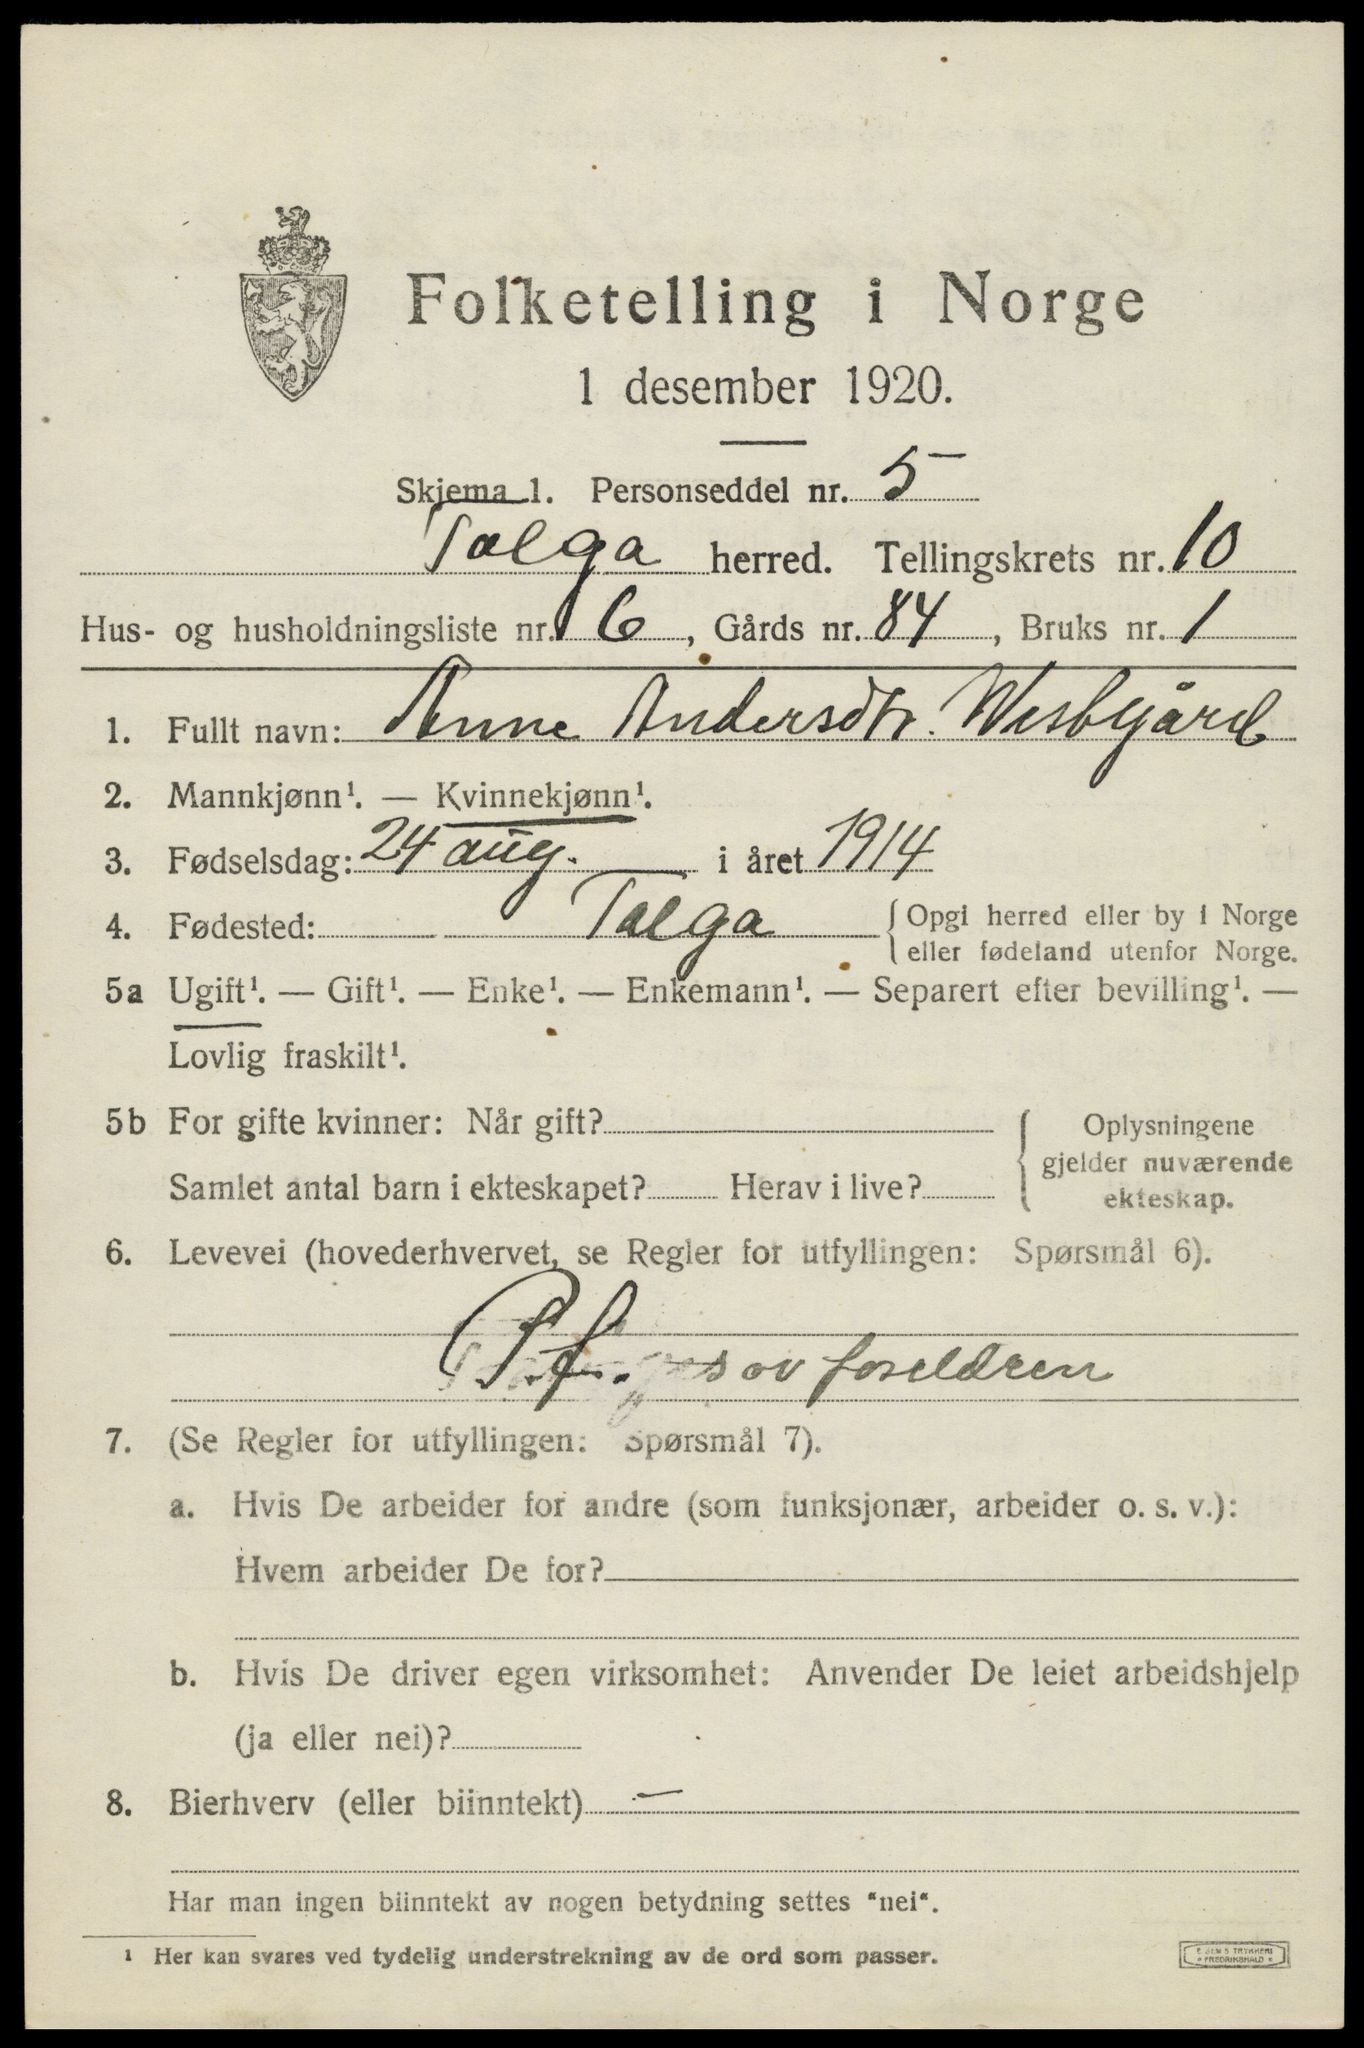 Folketelling i Norge
1 desember 1920.
Skjema 1. Personseddel nr. 5
Tolga herred. Tellingskrets nr. 10
Hus- og husholdningsliste nr. 6, Gårds nr. 84, Bruks nr. 1
1. Fullt navn: Anne Andersdtr. Wesbygård
2. Mannkjønn¹. — Kvinnekjønn¹.
3. Fødselsdag: 24 aug. i året 1914
4. Fødested: Tolga {Opgi herred eller by i Norge
eller fødeland utenfor Norge.
5a Ugift¹. — Gift¹. — Enke¹. — Enkemann¹. — Separert efter bevilling¹. —
Lovlig fraskilt¹.
5b For gifte kvinner: Når gift? Oplysningene
gjelder nuværende
Samlet antal barn i ekteskapet? Herav i live? ekteskap.
6. Levevei (hovederhvervet, se Regler for utfyllingen: Spørsmål 6).
P.f. av foreldren
7. (Se Regler for utfyllingen: Spørsmål 7).
a. Hvis De arbeider for andre (som funksjonær, arbeider o. s. v.):
Hvem arbeider De for?
b. Hvis De driver egen virksomhet: Anvender De leiet arbeidshjelp
(ja eller nei)?
8. Bierhverv (eller biinntekt) —
Har man ingen biinntekt av nogen betydning settes "nei".
¹ Her kan svares ved tydelig understrekning av de ord som passer.
E. SEM'S TRYKKERI
FREDRIKSHALD